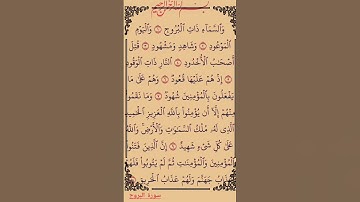 بسم الله الرحمن الرحيم
وَٱلسَّمَآءِ ذَاتِ ٱلْبُرُوجِ ۝ وَٱلْيَوْمِ
ٱلْمَوْعُودِ ۝ وَشَاهِدٍ وَمَشْهُودٍ ۝ قُتِلَ
أَصْحَٰبُ ٱلْأُخْدُودِ ۝ ٱلنَّارِ ذَاتِ ٱلْوَقُودِ
۝ إِذْ هُمْ عَلَيْهَا قُعُودٌ ۝ وَهُمْ عَلَىٰ مَا
يَفْعَلُونَ بِٱلْمُؤْمِنِينَ شُهُودٌ ۝ وَمَا نَقَمُوا۟
مِنْهُمْ إِلَّآ أَن يُؤْمِنُوا۟ بِٱللَّهِ ٱلْعَزِيزِ ٱلْحَمِيدِ
ٱلَّذِى لَهُۥ مُلْكُ ٱلسَّمَٰوَٰتِ وَٱلْأَرْضِ وَٱللَّهُ
عَلَىٰ كُلِّ شَىْءٍ شَهِيدٌ ۝ إِنَّ ٱلَّذِينَ فَتَنُوا۟
ٱلْمُؤْمِنِينَ وَٱلْمُؤْمِنَٰتِ ثُمَّ لَمْ يَتُوبُوا۟ فَلَهُمْ
عَذَابُ جَهَنَّمَ وَلَهُمْ عَذَابُ ٱلْحَرِيقِ ۝
سورة البروج